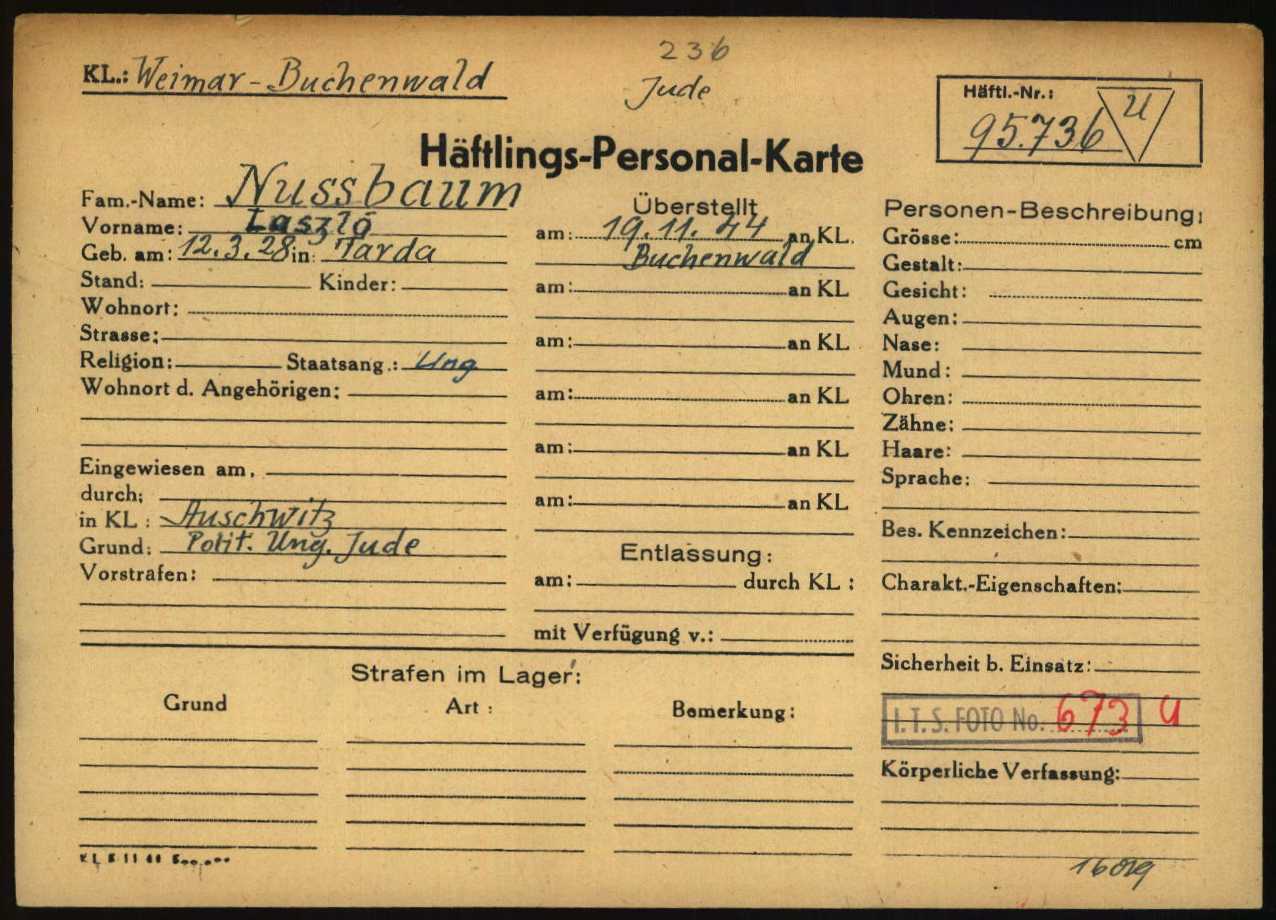 236
KL.: Weimar-Buchenwald
Jude
Häftl.-Nr.:
95.736 U
Häftlings-Personal-Karte
Fam.-Name: Nussbaum
Vorname: Laszló
Geb. am: 12.3.28 in: Tarda
Stand: Kinder:
Wohnort:
Strasse:
Religion: Staatsang.: Ung
Wohnort d. Angehörigen:
Eingewiesen am,
durch:
in KL : Auschwitz
Grund: Polit. Ung. Jude
Vorstrafen:
Überstellt
am: 19.11.44 an KL.
Buchenwald
am: an KL
am: an KL
am: an KL
am: an KL
am: an KL
Entlassung:
am: durch KL :
mit Verfügung v.:
Personen-Beschreibung:
Grösse: cm
Gestalt:
Gesicht:
Augen:
Nase:
Mund:
Ohren:
Zähne:
Haare:
Sprache:
Bes. Kennzeichen:
Charakt.-Eigenschaften:
Sicherheit b. Einsatz:
I.T.S. FOTO No. 673 U
Körperliche Verfassung:
Strafen im Lager:
Grund Art : Bemerkung: